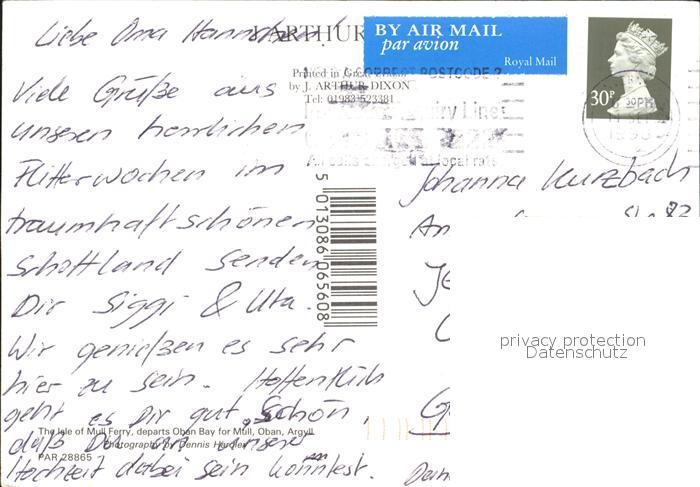 Liebe Oma Hannchen!
J. ARTHUR
BY AIR MAIL
par avion
Royal Mail
30P
Viele Grüße aus
unseren herrlichen
Flitterwochen im
traumhaft schönen
Schottland senden
Dir Siggi & Uta.
Wir genießen es sehr
hier zu sein. Hoffentlich
geht es Dir gut. Schön,
daß Du an unserer
Hochzeit dabei sein konntest.
Printed in Great Britain
by J. ARTHUR DIXON
Tel: 01983 523381
CORRECT POSTCODE?
Enquiry Line
All calls charged at local rate
5 013086 065608
The Isle of Mull Ferry, departs Oban Bay for Mull, Oban, Argyll
Photography by Dennis Hardley
PAR 28865
Johanna Kurzbach
An
privacy protection
Datenschutz